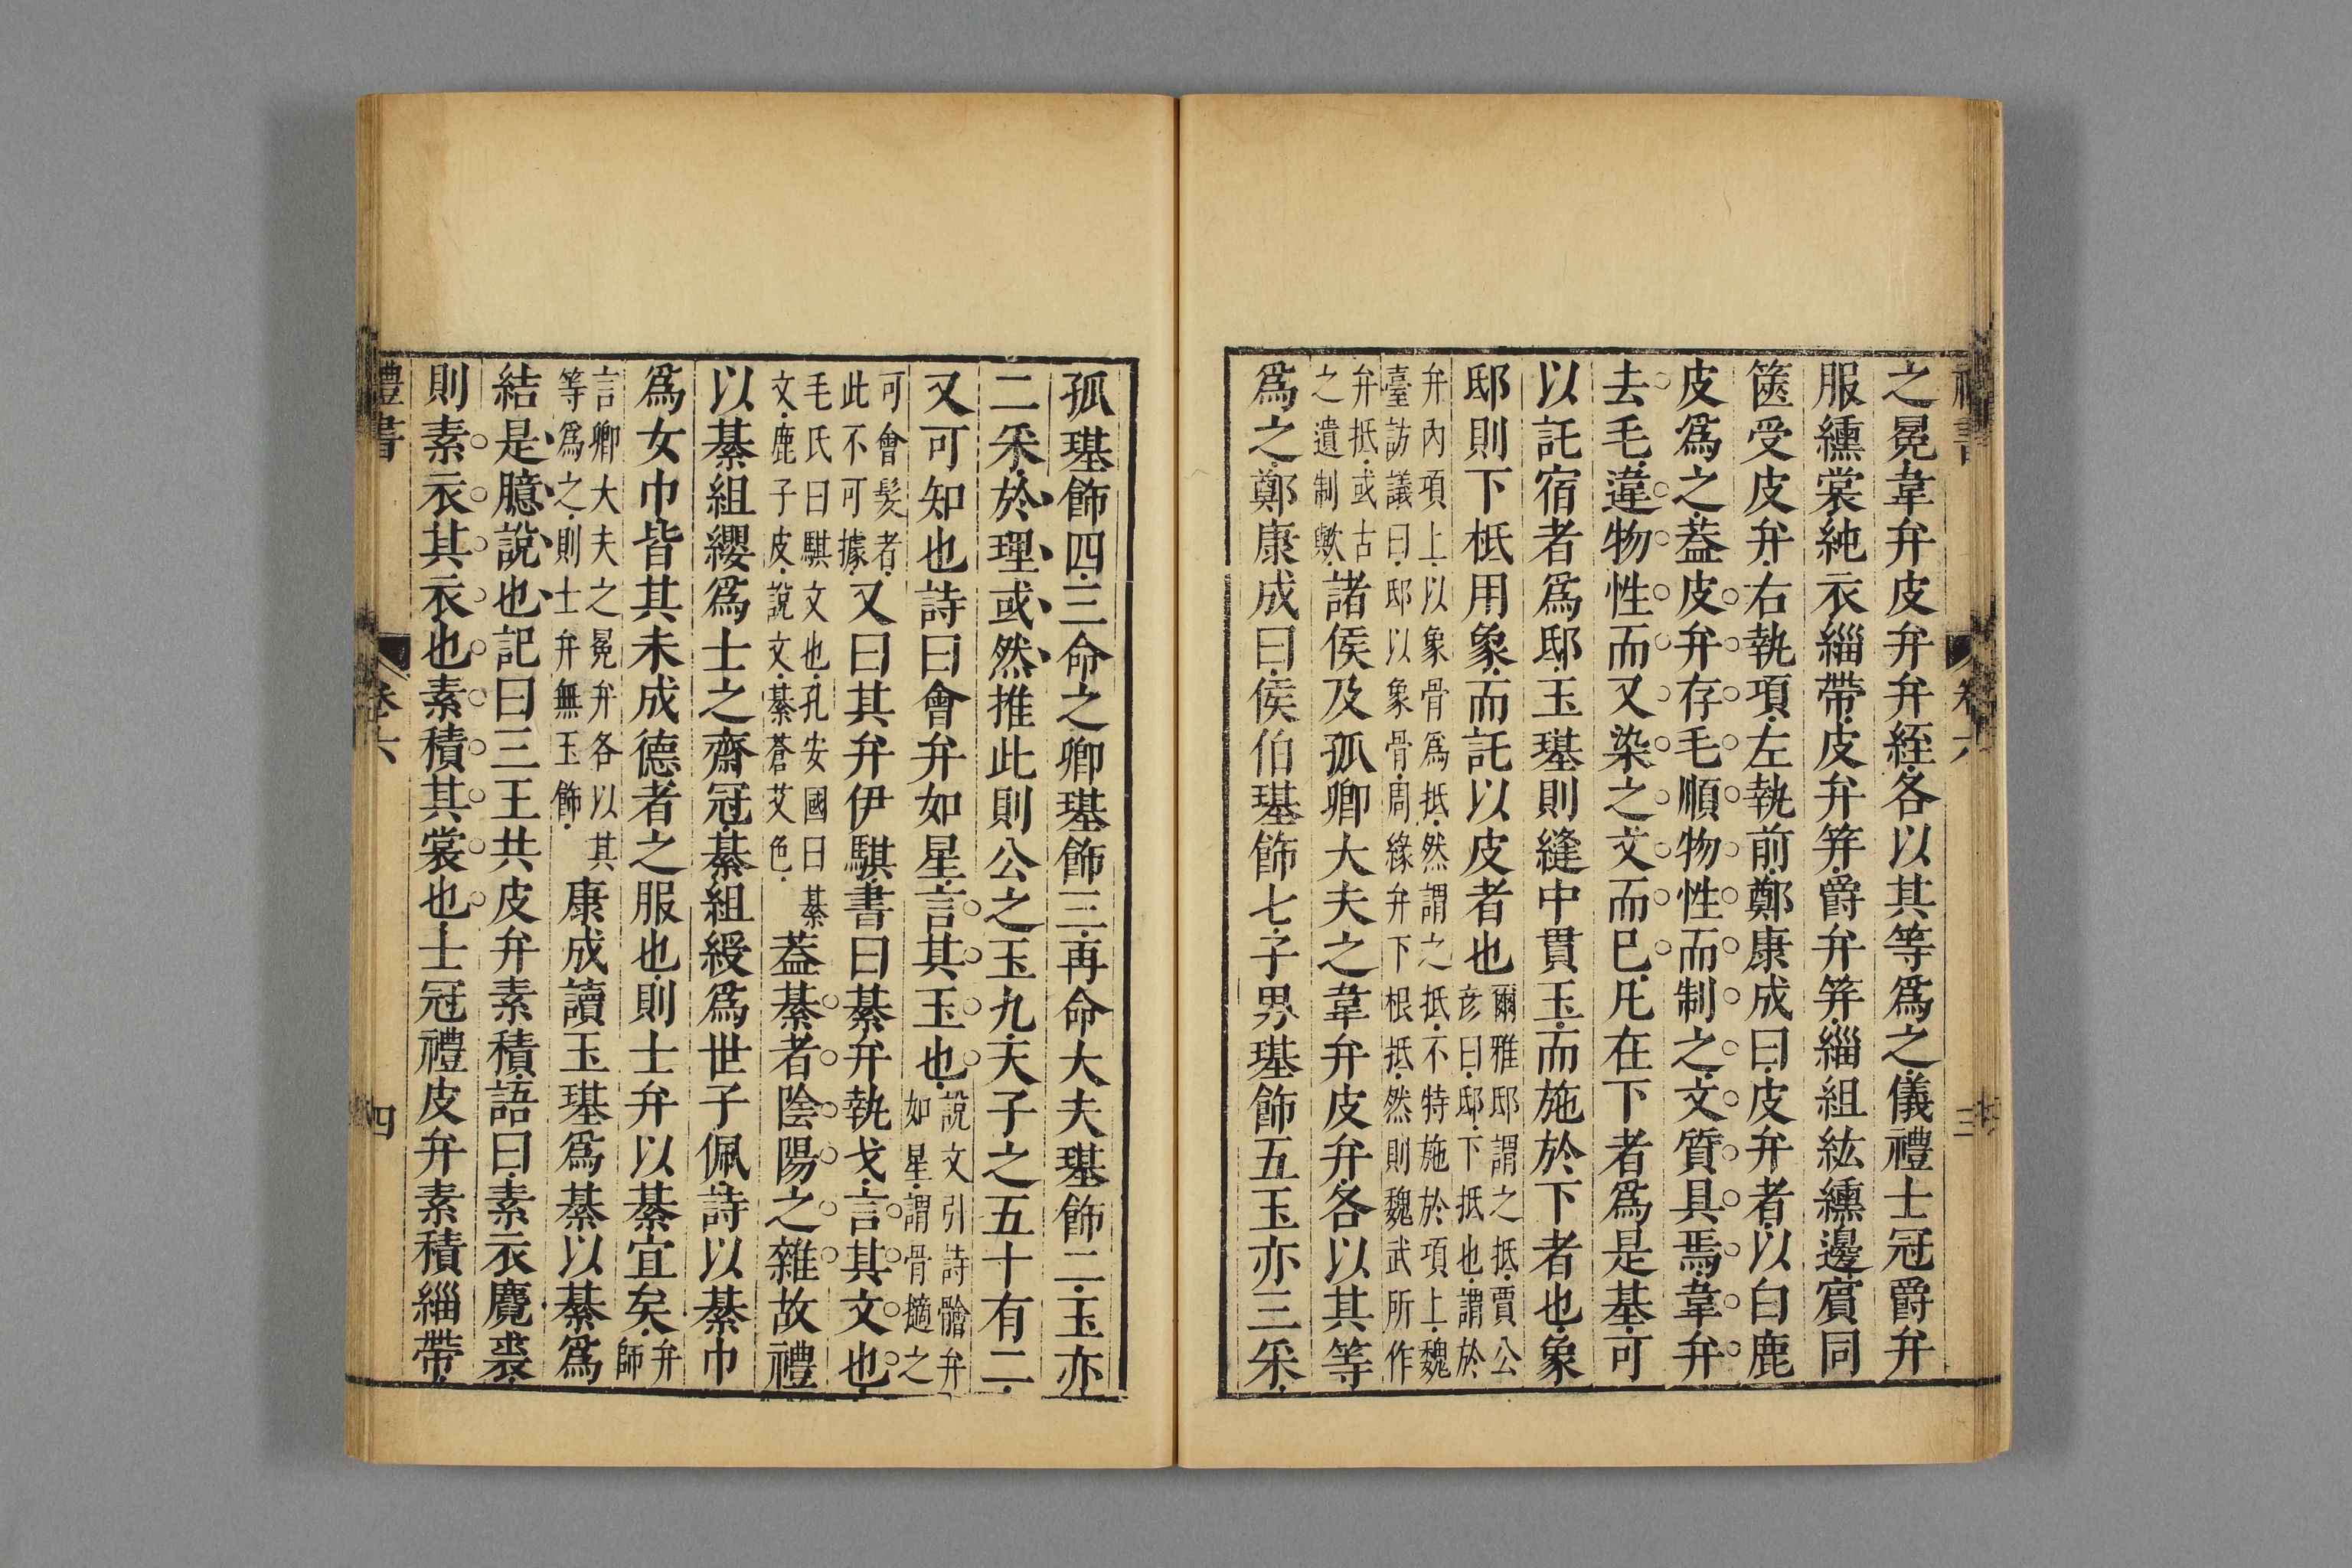 之冕韋弁皮弁弁絰各以其等爲之儀禮士冠爵弁
服纁裳純衣緇帶皮弁笄爵弁笄緇組紘纁邊賔同
篋受皮弁右執項左執前鄭康成曰皮弁者以白鹿
皮爲之葢皮弁存毛順物性而制之文質具焉韋弁
去毛違物性而又染之文而已凡在下者爲是基可
以託宿者爲邸玉璂則縫中貫玉而施於下者也象
邸則下柢用象而託以皮者也爾雅邸謂之抵賈公
彦曰邸下抵也謂於
弁內項上以象骨爲抵然謂之抵不特施於項上魏
臺訪議曰邸以象骨周緣弁下根抵然則魏武所作
弁抵或古
之遺制歟諸侯及孤卿大夫之韋弁皮弁各以其等
爲之鄭康成曰侯伯璂飾七子男璂飾五玉亦三采
禮書 卷六 三
孤璂飾四三命之卿璂飾三再命大夫璂飾二玉亦
二采於理或然推此則公之玉九天子之五十有二
又可知也詩曰會弁如星言其玉也說文引詩䯤弁
如星謂骨擿之
可會髮者
此不可據又曰其弁伊騏書曰綦弁執戈言其文也
毛氏曰騏文也孔安國曰綦
文鹿子皮說文綦蒼艾色葢綦者陰陽之雜故禮
以綦組纓爲士之齋冠綦組綬爲世子佩詩以綦巾
爲女巾皆其未成德者之服也則士弁以綦宜矣弁
師
言卿大夫之冕弁各以其
等爲之則士弁無玉飾康成讀玉璂爲綦以綦爲
結是臆說也記曰三王共皮弁素積語曰素衣麑裘
則素衣其衣也素積其裳也士冠禮皮弁素積緇帶
禮書 卷六 四